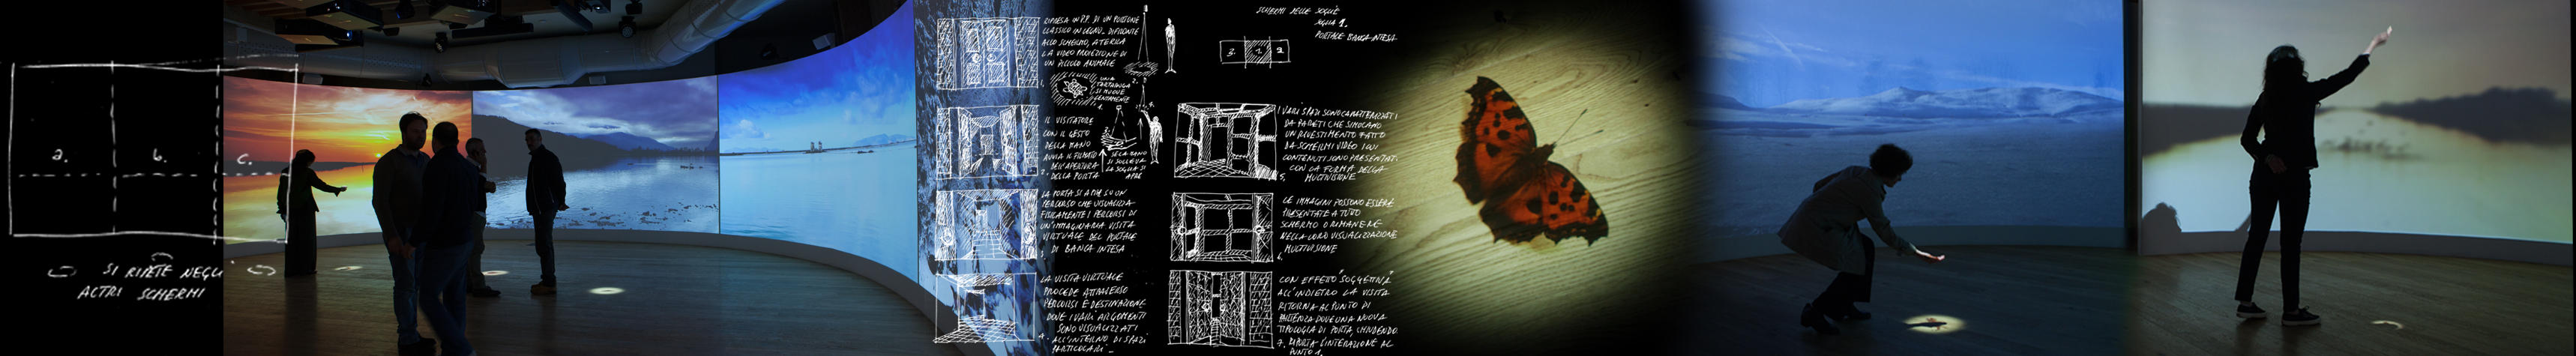 a.
b.
c.
SI RIPETE NEGLI
ALTRI SCHERMI
RIPRESA IN P.P. DI UN PORTONE
CLASSICO IN LEGNO, DIFRONTE
ALLO SCHERMO, A TERRA
LA VIDEO PROIEZIONE DI
UN PICCOLO ANIMALE
1.
UNA
TARTARUGA
SI MUOVE
LENTAMENTE
IL VISITATORE
CON IL GESTO
DELLA MANO
AVVIA IL FILMATO
DELL'APERTURA
2. DELLA PORTA
SE LA MANO
SI SOLLEVA
LA SOGLIA SI
APRE
LA PORTA SI APRE SU UN
PERCORSO CHE VISUALIZZA
FISICAMENTE I PERCORSI DI
UN'IMMAGINARIA VISITA
VIRTUALE DEL PORTALE
DI BANCA INTESA
3.
LA VISITA VIRTUALE
PROCEDE ATTRAVERSO
PERCORSI E DESTINAZIONE
DOVE I VARI ARGOMENTI
SONO VISUALIZZATI
4. ALL'INTERNO DI SPAZI
PARTICOLARI
SCHERMI DELLE SOGLIE
SOGLIA 1.
PORTALE BANCA INTESA
3. 1. 2
I VARI SPAZI SONO CARATTERIZZATI
DA PARETI CHE SIMULANO
UN RIVESTIMENTO FATTO
DA SCHERMI VIDEO I CUI
CONTENUTI SONO PRESENTATI
CON LA FORMA DELLA
5. MULTIVISIONE
LE IMMAGINI POSSONO ESSERE
PRESENTATE A TUTTO
SCHERMO O RIMANERE
NELLA LORO VISUALIZZAZIONE
MULTIVISIONE
6.
CON EFFETTO "SOGGETTIVA"
ALL'INDIETRO LA VISITA
RITORNA AL PUNTO DI
PARTENZA DOVE UNA NUOVA
TIPOLOGIA DI PORTA, CHIUDENDO
7. RIPORTA L'INTERAZIONE AL
PUNTO 1.